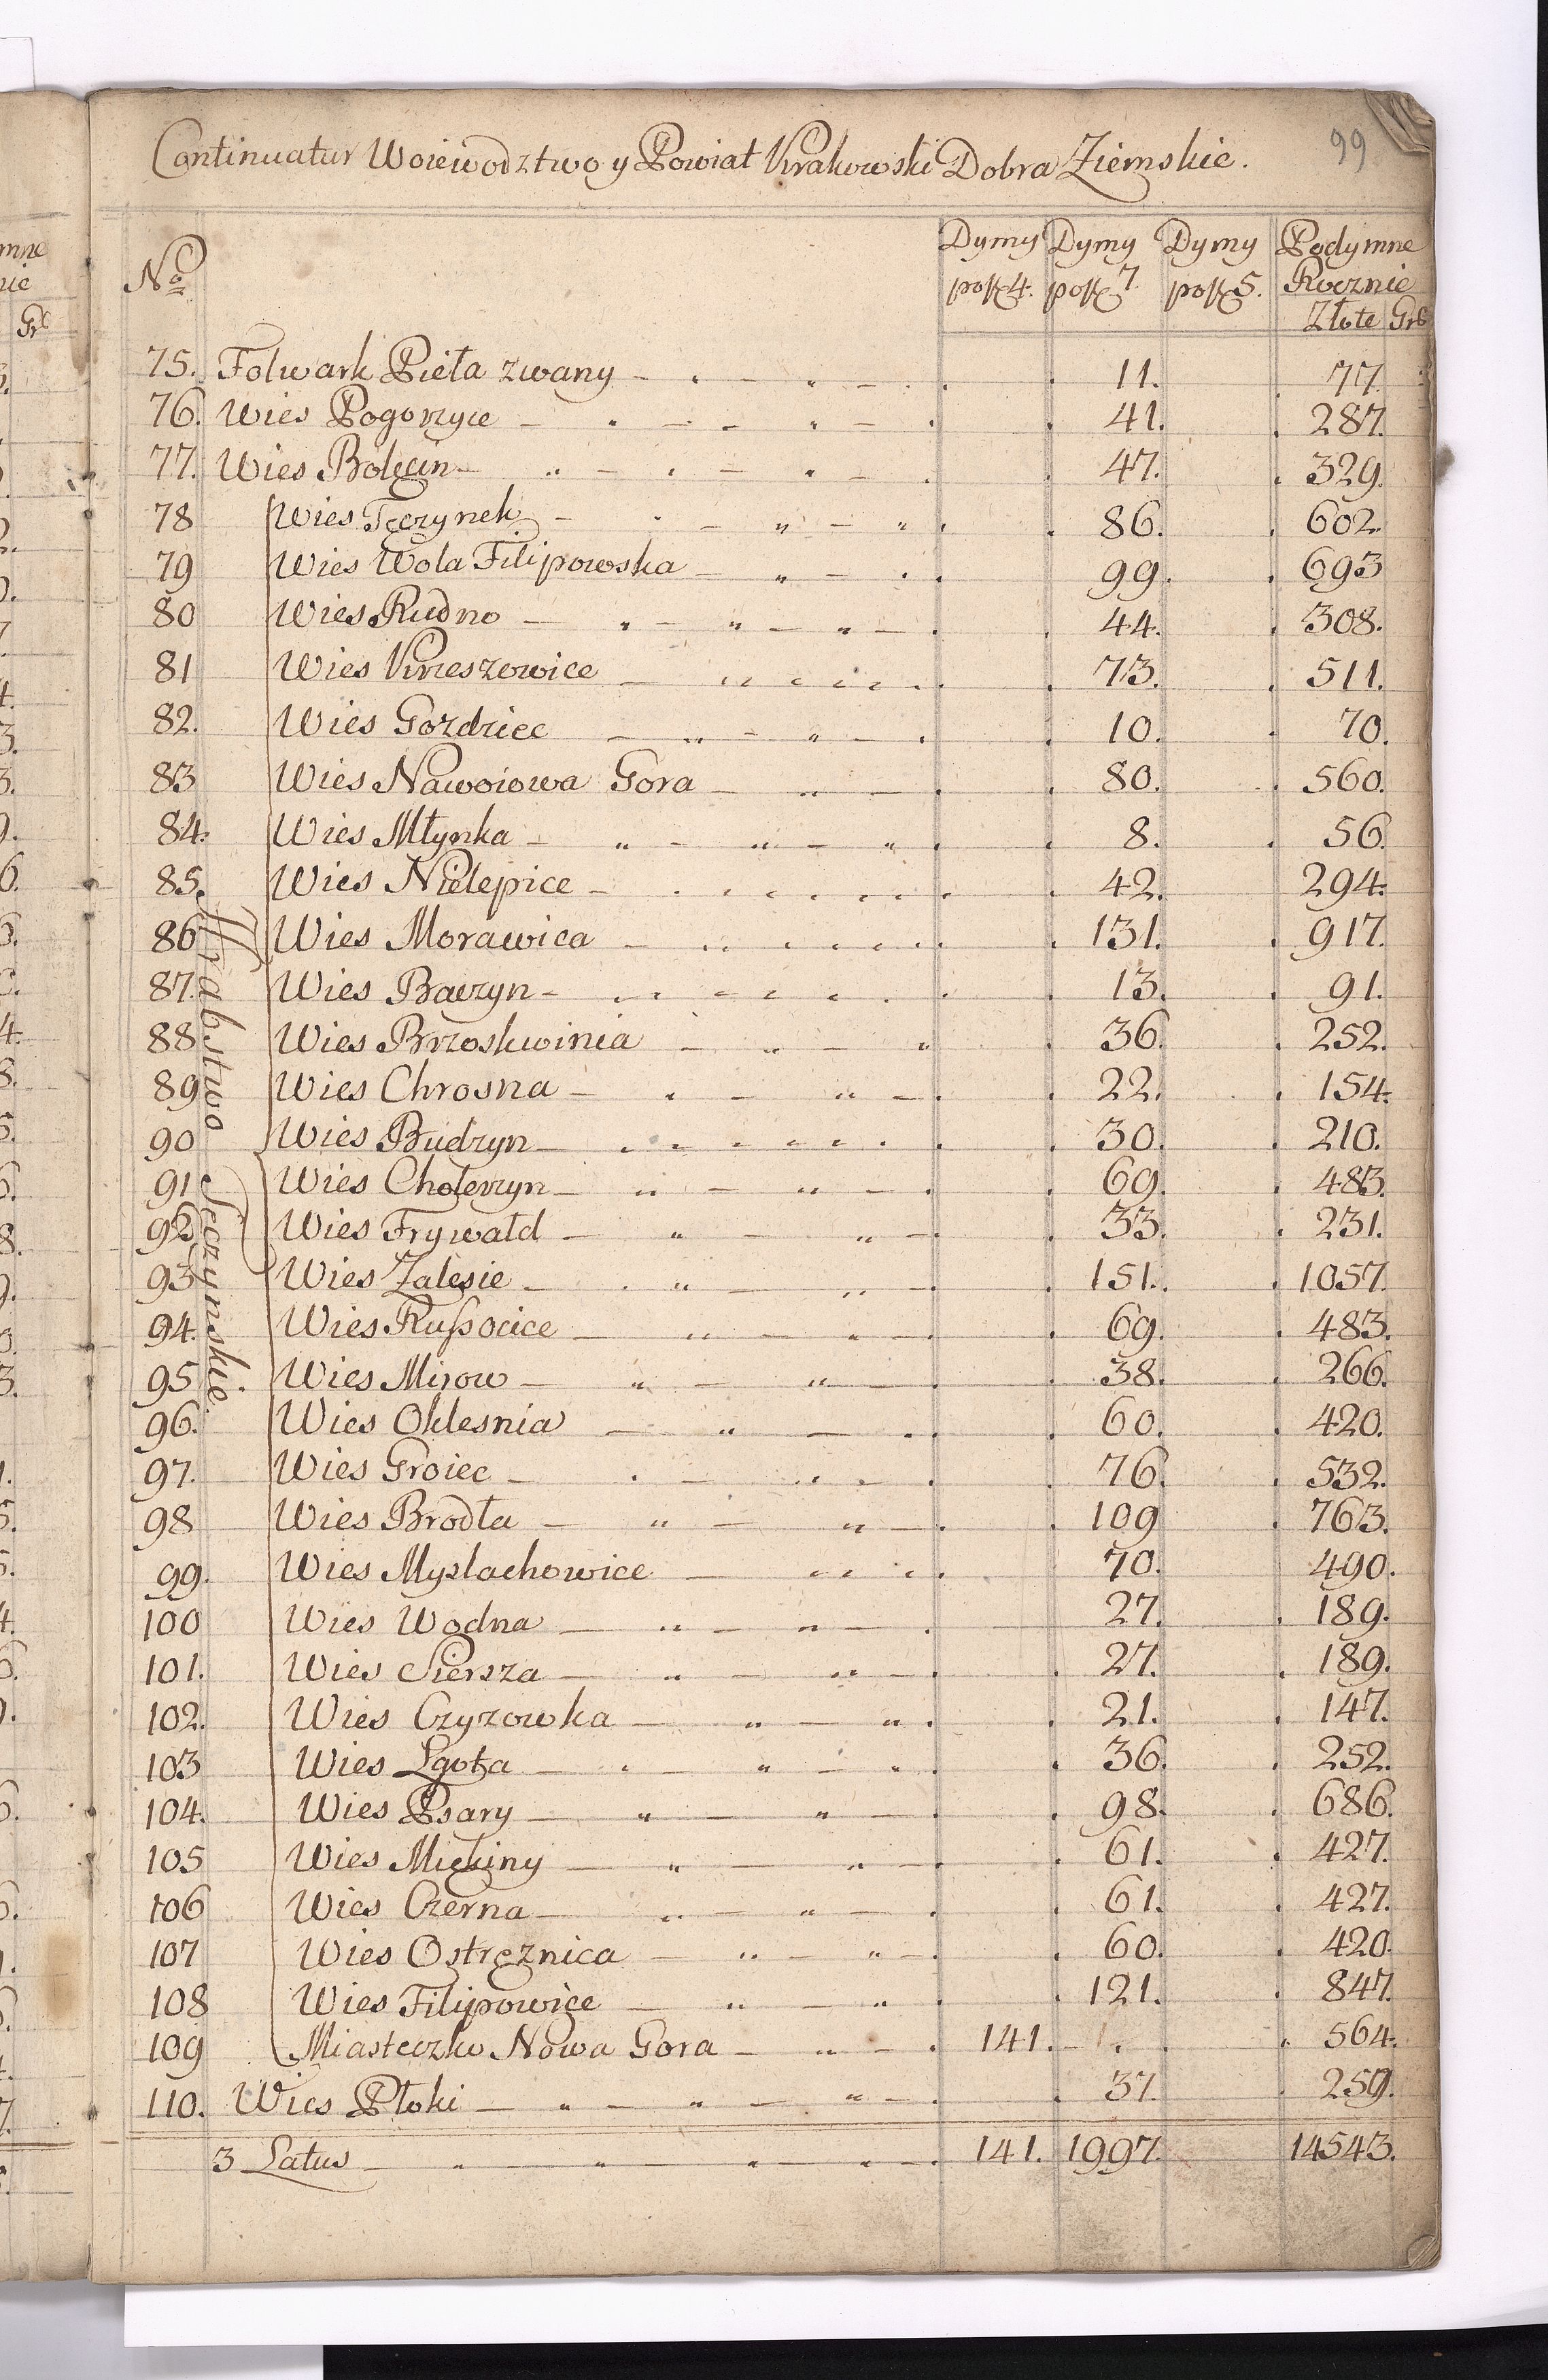 Continuatur Woiewodztwo y Powiat Krakowski Dobra Ziemskie. 99
No Dymy poſz 4. Dymy poſz 7. Dymy poſz 5. Podymne Rocznie
Złote Gr
75. Folwark Pieła zwany 11. 77.
76. Wies Pogorzyce 41. 287.
77. Wies Bolęcin 47. 329.
78 Wies Tęczynek 86. 602.
79 Wies Wola Filipowska 99. 693
80 Wies Rudno 44. 308.
81 Wies Krzeszowice 73. 511.
82. Wies Gozdziec 10. 70.
83 Wies Nawoiowa Gora 80. 560.
84. Wies Młynka 8. 56.
85. Wies Nielepice 42. 294.
86 Wies Morawica 131. 917.
87. Wies Baczyn 13. 91.
88 Wies Brzoskwinia 36. 252.
89 Wies Chrosna 22. 154.
90 Wies Budzyn 30. 210.
91 Wies Chołerzyn 69. 483.
92 Wies Frywałd 33. 231.
93 Wies Zalesie 151. 1057.
94. Wies Ruſsocice 69. 483.
95 Wies Mirow 38. 266.
96. Wies Oklesnia 60. 420.
97. Wies Groiec 76. 532.
98 Wies Brodła 109 763.
99. Wies Myslachowice 70. 490.
100 Wies Wodna 27. 189.
101. Wies Siersza 27. 189.
102. Wies Czyzowka 21. 147.
103 Wies Lgota 36. 252.
104. Wies Psary 98. 686.
105 Wies Miękiny 61. 427.
106 Wies Czerna 61. 427.
107 Wies Ostręznica 60. 420.
108 Wies Filipowice 121. 847.
109 Miasteczko Nowa Gora 141. 564.
110. Wies Płoki 37. 259.
3 Latus 141. 1997. 14543.
Hrabstwo Tęczynskie.